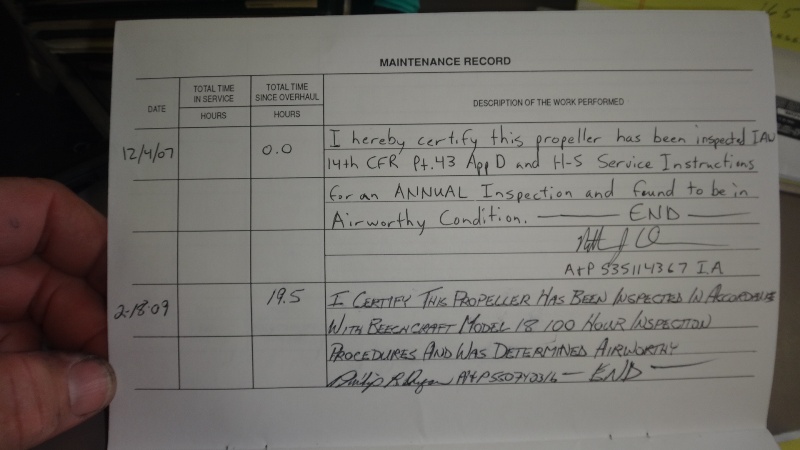 MAINTENANCE RECORD
DATE
TOTAL TIME IN SERVICE
HOURS
TOTAL TIME SINCE OVERHAUL
HOURS
DESCRIPTION OF THE WORK PERFORMED
12/4/07 0.0 I hereby certify this propeller has been inspected IAW
14th CFR Pt.43 App D and H-S Service Instructions
for an ANNUAL Inspection and found to be in
Airworthy Condition. — END —
A+P 535114367 I.A
2-18-09 19.5 I CERTIFY THIS PROPELLER HAS BEEN INSPECTED IN ACCORDANCE
WITH BEECHCRAFT MODEL 18 100 HOUR INSPECTION
PROCEDURES AND WAS DETERMINED AIRWORTHY
Philip R A+P — END —